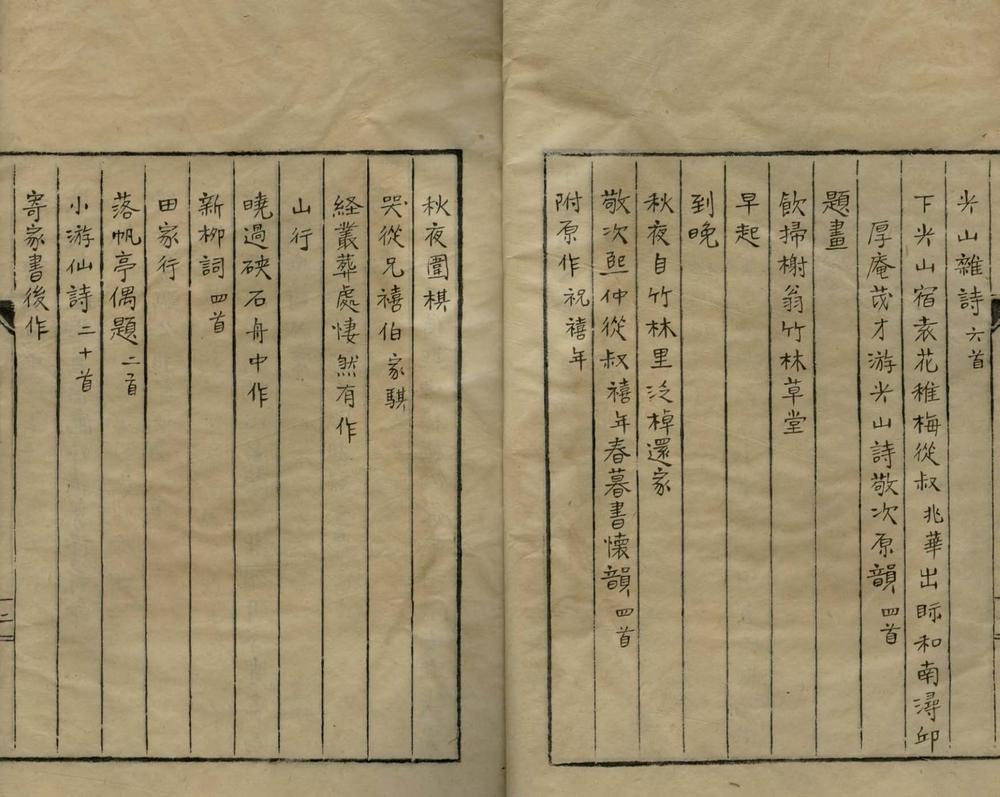 尖山雜詩 六首
下尖山宿袁花稚梅從叔兆華出眎和南潯邱
厚庵茂才游尖山詩敬次原韻 四首
題畫
飲掃榭翁竹林草堂
早起
到晚
秋夜自竹林里泛棹還家
敬次熙仲從叔禧年春暮書懷韻 四首
附原作祝禧年
秋夜圍棋
哭從兄禧伯家騏
経叢葬處悽然有作
山行
曉過硤石舟中作
新柳詞 四首
田家行
落帆亭偶題 二首
小游仙詩 二十首
寄家書後作
二